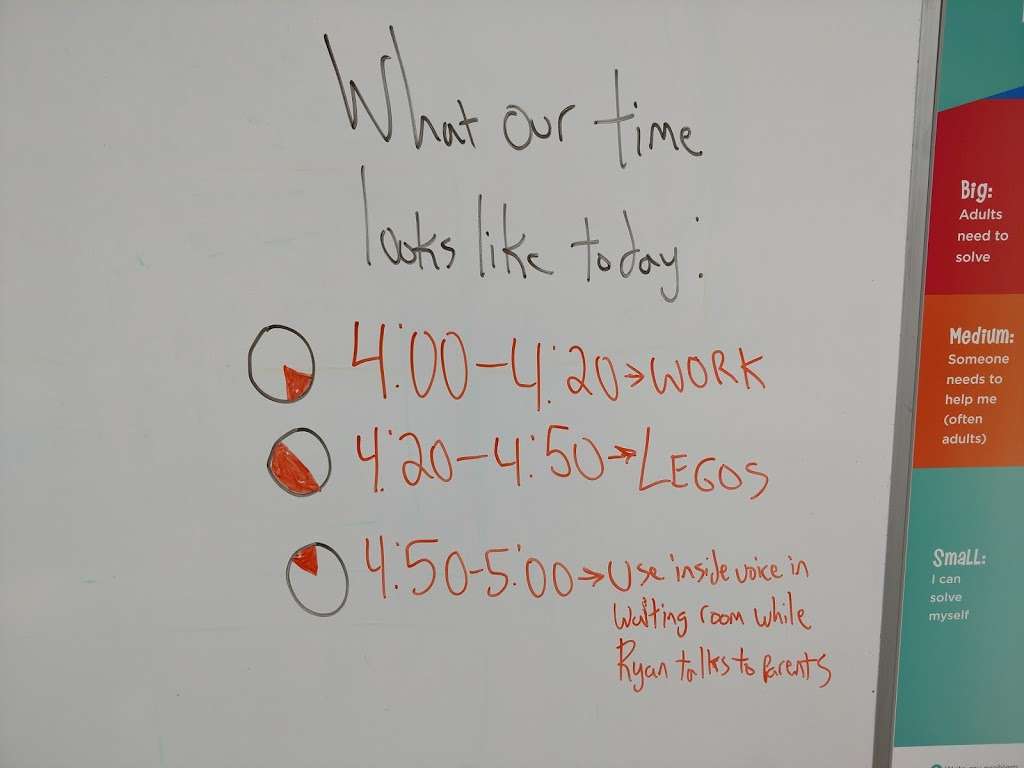 What our time
looks like today:
4:00-4:20→WORK
4:20-4:50→LEGOS
4:50-5:00→Use inside voice in
Waiting room while
Ryan talks to parents
Big:
Adults
need to
solve
Medium:
Someone
needs to
help me
(often
adults)
Small:
I can
solve
myself